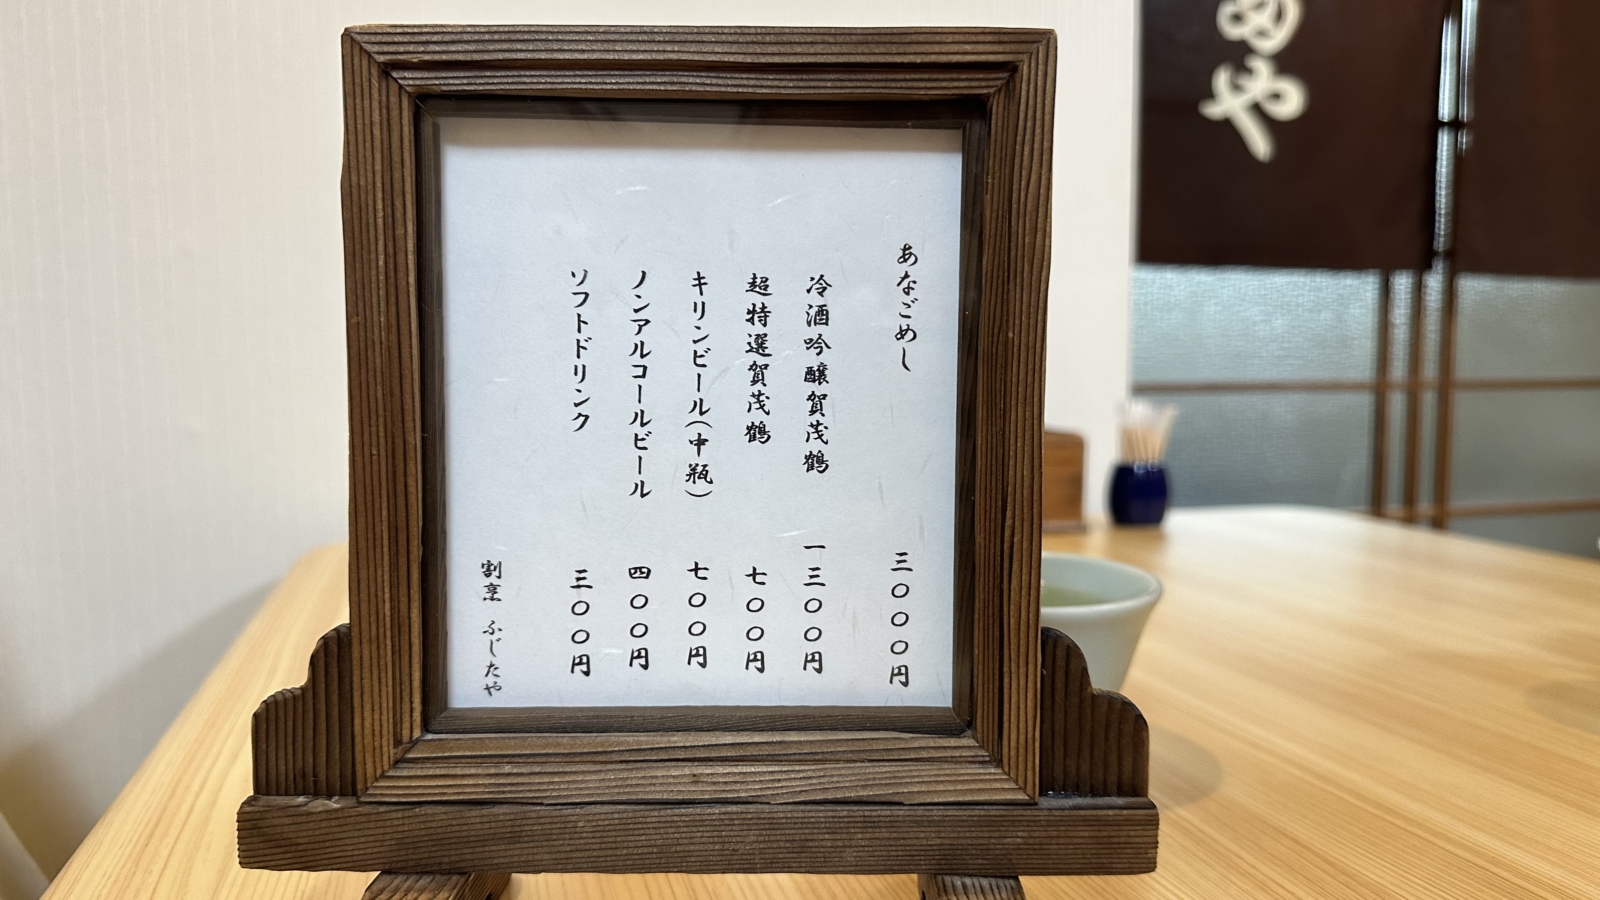 あなごめし 三〇〇〇円
冷酒吟醸賀茂鶴 一三〇〇円
超特選賀茂鶴 七〇〇円
キリンビール(中瓶) 七〇〇円
ノンアルコールビール 四〇〇円
ソフトドリンク 三〇〇円
割烹 ふじたや
めや